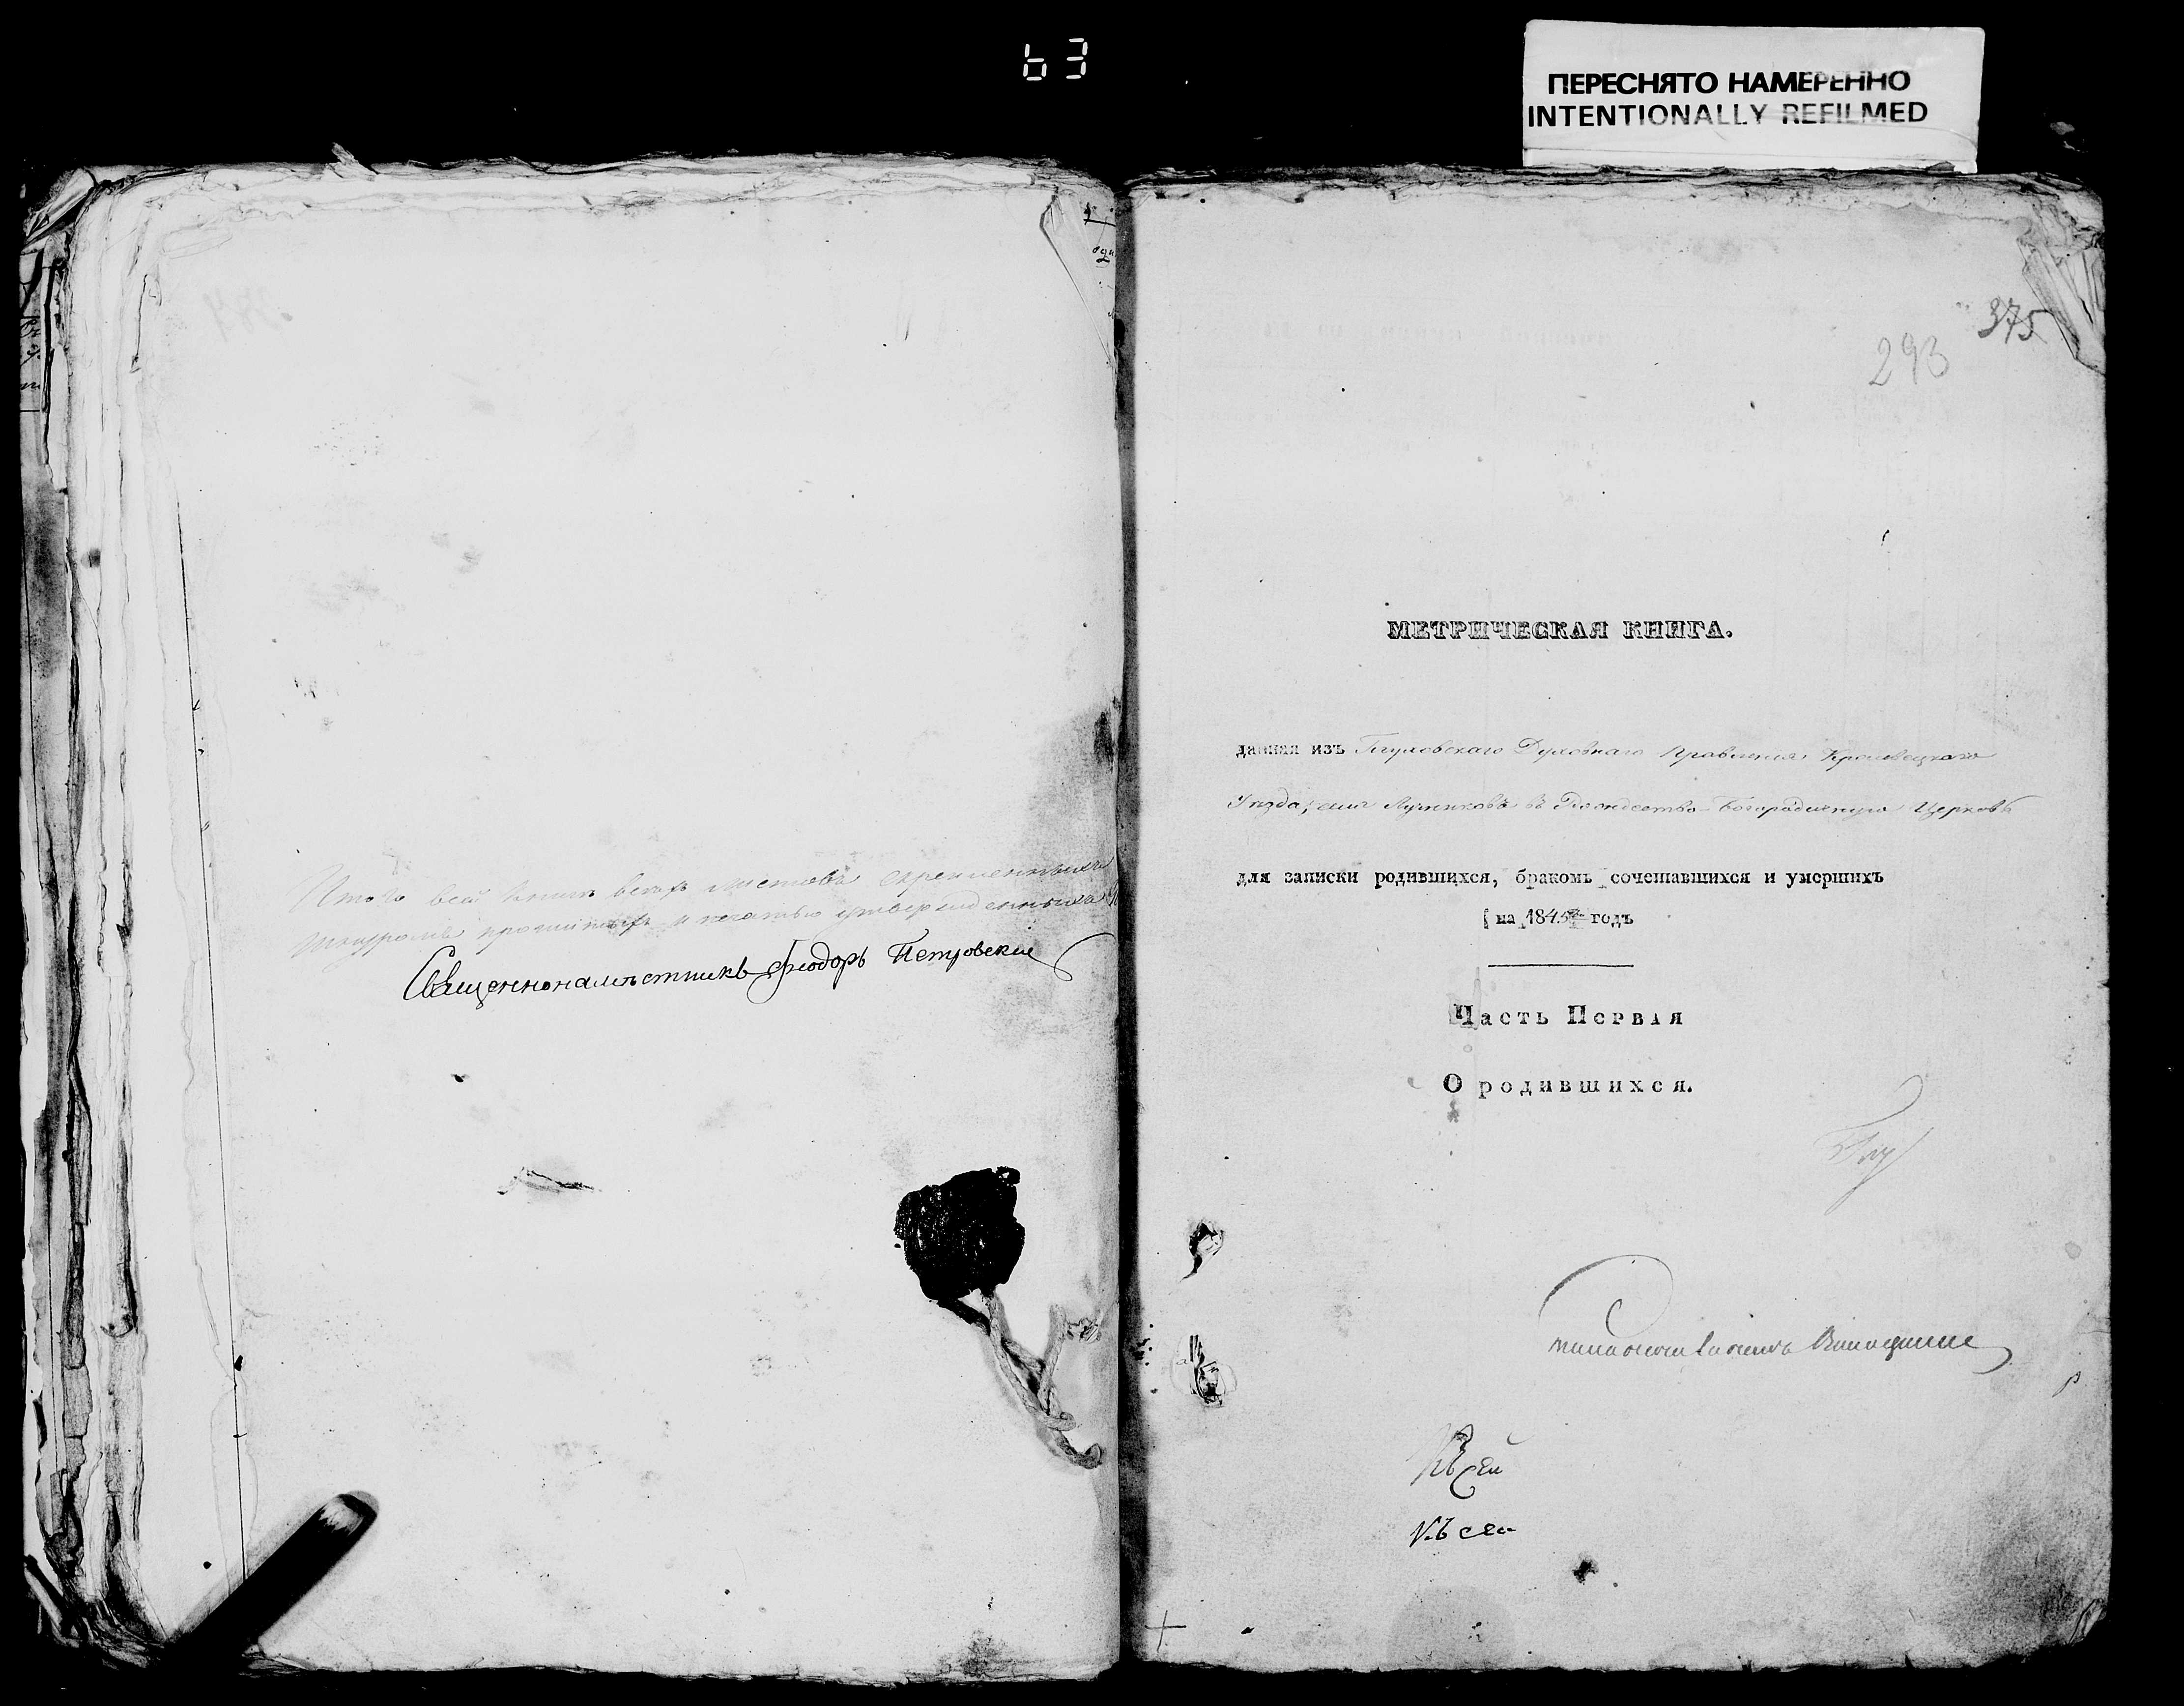 63
ПЕРЕСНЯТО НАМЕРЕННО
INTENTIONALLY REFILMED
Итого всей книги всехъ листовъ скрепленныхъ
шнуромъ прошитыхъ и печатью утвержденныхъ
Священнонаместникъ Феодоръ Петровский
375
293
МЕТРИЧЕСКАЯ КНИГА.
данная изъ Глуховскаго Духовнаго Правления Кролевецкаго
Уезда, села Лужниковъ въ Рождество-Богородичную Церковь
для записки родившихся, бракомъ сочетавшихся и умершихъ
на 1845й годъ
Часть Первая
О родившихся.
Къ сей
Къ сей